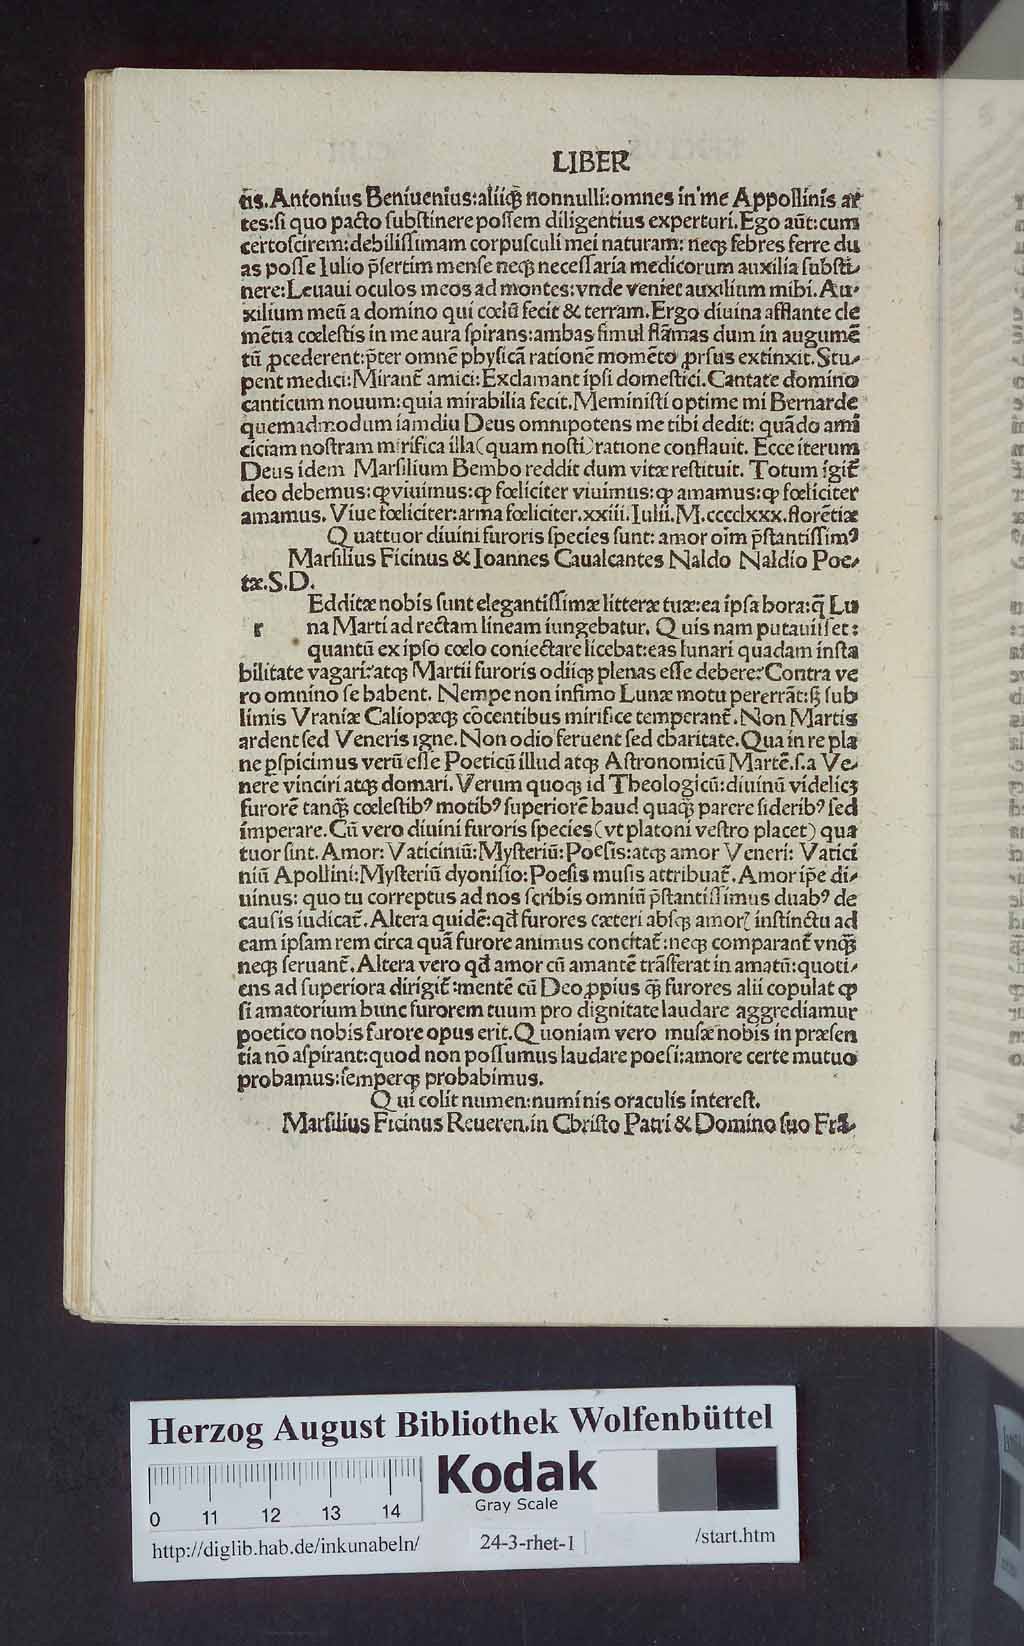 LIBER
tis. Antonius Beniuenius:aliiqȝ nonnulli:omnes in me Appollinis ar
tes:si quo pacto substinere possem diligentius experturi. Ego aūt:cum
certoscirem:debilissimam corpusculi mei naturam: neqȝ febres ferre du
as posse Iulio p̄sertim mense neqȝ necessaria medicorum auxilia substi-
nere: Leuaui oculos meos ad montes:vnde veniet auxilium mihi. Au-
xilium meū a domino qui cœlū fecit & terram. Ergo diuina afflante cle
mētia cœlestis in me aura spirans:ambas simul flāmas dum in augumē
tū ꝓcederent:p̄ter omnē physicā rationē momēto ꝓrsus extinxit. Stu-
pent medici: Mirant̄ amici: Exclamant ipsi domestici. Cantate domino
canticum nouum:quia mirabilia fecit. Meministi optime mi Bernarde
quemadmodum iamdiu Deus omnipotens me tibi dedit: quādo ami
ciciam nostram mirifica illa (quam nosti) ratione conflauit. Ecce iterum
Deus idem Marsilium Bembo reddit dum vitæ restituit. Totum igit̄
deo debemus:ꝙ viuimus:ꝙ fœliciter viuimus:ꝙ amamus:ꝙ fœliciter
amamus. Viue fœliciter:arma fœliciter.xxiii. Iulii. M.cccclxxx.florētiæ
Quattuor diuini furoris species sunt: amor oīm p̄stantissimꝰ
Marsilius Ficinus & Ioannes Caualcantes Naldo Naldio Poe-
tæ. S. D.
Edditæ nobis sunt elegantissimæ litteræ tuæ:ea ipsa hora:q̄ Lu
r na Marti ad rectam lineam iungebatur. Quis nam putauisset:
quantū ex ipso cœlo coniectare licebat:eas lunari quadam insta
bilitate vagari:atqȝ Martii furoris odiiqȝ plenas esse debere? Contra ve
ro omnino se habent. Nempe non infimo Lunæ motu pererrāt:sȝ sub
limis Vraniæ Caliopæqȝ cōcentibus mirifice temperant̄. Non Martis
ardent sed Veneris igne. Non odio feruent sed charitate. Qua in re pla
ne ꝑspicimus verū esse Poeticū illud atqȝ Astronomicū Martē.s.a Ve-
nere vinciri atqȝ domari. Verum quoqȝ id Theologicū:diuinū videlicȝ
furorē tanq̄ȝ cœlestibꝰ motibꝰ superiorē haud quaq̄ȝ parere sideribꝰ sed
imperare. Cū vero diuini furoris species (vt platoni vestro placet) qua
tuor sint. Amor: Vaticiniū: Mysteriū: Poesis: atqȝ amor Veneri: Vatici
niū Apollini: Mysteriū dyonisio: Poesis musis attribuat̄. Amor ip̄e di-
uinus: quo tu correptus ad nos scribis omniū p̄stantissimus duabꝰ de
causis iudicat̄. Altera quidē:qd̄ furores cæteri absqȝ amorꝭ instinctu ad
eam ipsam rem circa quā furore animus concitat̄:neqȝ comparant̄ vnq̄ȝ
neqȝ seruant̄. Altera vero qd̄ amor cū amantē trāsferat in amatū:quoti-
ens ad superiora dirigit̄:mentē cū Deo ꝓpius q̄ȝ furores alii copulat ꝙ
si amatorium hunc furorem tuum pro dignitate laudare aggrediamur
poetico nobis furore opus erit. Quoniam vero musæ nobis in præsen
tia nō aspirant:quod non possumus laudare poesi:amore certe mutuo
probamus:semperqȝ probabimus.
Qui colit numen:numinis oraculis interest.
Marsilius Ficinus Reueren. in Christo Patri & Domino suo Frā-
Herzog August Bibliothek Wolfenbüttel
Kodak
Gray Scale
0 11 12 13 14
http://diglib.hab.de/inkunabeln/ 24-3-rhet-1 /start.htm